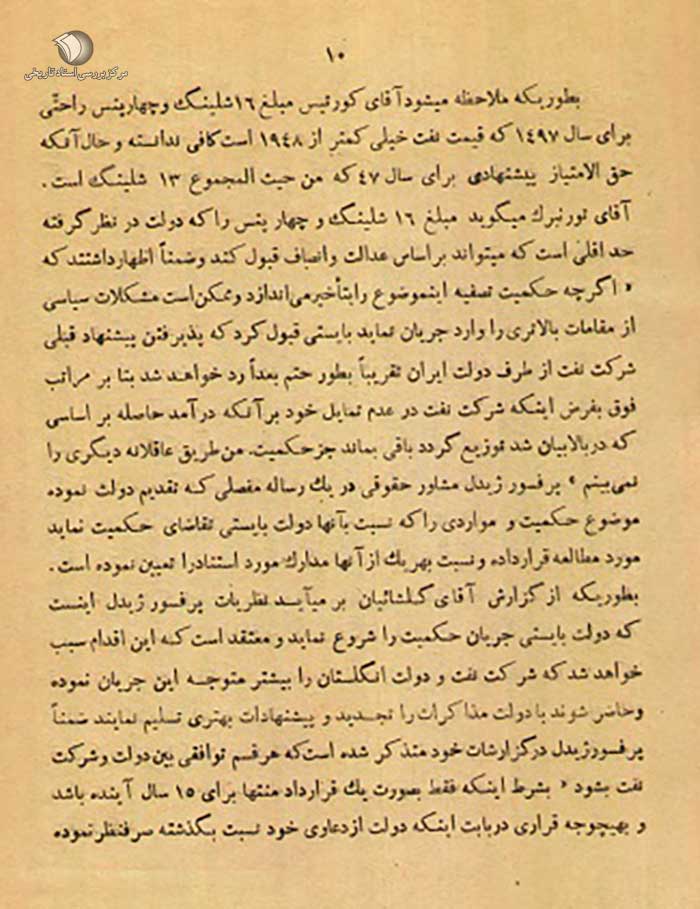 مرکز بررسی اسناد تاریخی
۱۰
بطوریکه ملاحظه میشود آقای کورتیس مبلغ ۱۶ شلینگ و چهار پنس را حتی
برای سال ۱۴۹۷ که قیمت نفت خیلی کمتر از ۱۹۴۸ است کافی ندانسته و حال آنکه
حق الامتیاز پیشنهادی برای سال ۴۷ که من حیث المجموع ۱۳ شلینگ است.
آقای تورنبرک میگوید مبلغ ۱۶ شلینگ و چهار پنس را که دولت در نظر گرفته
حد اقلی است که میتواند بر اساس عدالت و انصاف قبول کند و ضمناً اظهار داشتند که
« اگر چه حکمیت تصفیه اینموضوع را بتأخیر می‌اندازد و ممکن است مشکلات سیاسی
از مقامات بالاتری را وارد جریان نماید بایستی قبول کرد که پذیرفتن پیشنهاد قبلی
شرکت نفت از طرف دولت ایران تقریباً بطور حتم بعداً رد خواهد شد بنا بر مراتب
فوق بفرض اینکه شرکت نفت در عدم تمایل خود بر آنکه درآمد حاصله بر اساسی
که در بالا بیان شد توزیع گردد باقی بماند جز حکمیت. من طریق عاقلانه دیگری را
نمی‌بینم » پرفسور ژیدل مشاور حقوقی در یک رساله مفصلی که تقدیم دولت نموده
موضوع حکمیت و مواردی را که نسبت بآنها دولت بایستی تقاضای حکمیت نماید
مورد مطالعه قرار داده و نسبت بهر یک از آنها مدارک مورد استناد را تعیین نموده است.
بطوریکه از گزارش آقای گلشائیان بر میآید نظریات پرفسور ژیدل اینست
که دولت بایستی جریان حکمیت را شروع نماید و معتقد است که این اقدام سبب
خواهد شد که شرکت نفت و دولت انگلستان را بیشتر متوجه این جریان نموده
و حاضر شوند با دولت مذاکرات را تجدید و پیشنهادات بهتری تسلیم نمایند ضمناً
پرفسور ژیدل در گزارشات خود متذکر شده است که هر قسم توافقی بین دولت و شرکت
نفت بشود « بشرط اینکه فقط بصورت یک قرارداد منتها برای ۱۵ سال آینده باشد
و بهیچوجه قراری در بابت اینکه دولت از دعاوی خود نسبت بگذشته صرفنظر نموده